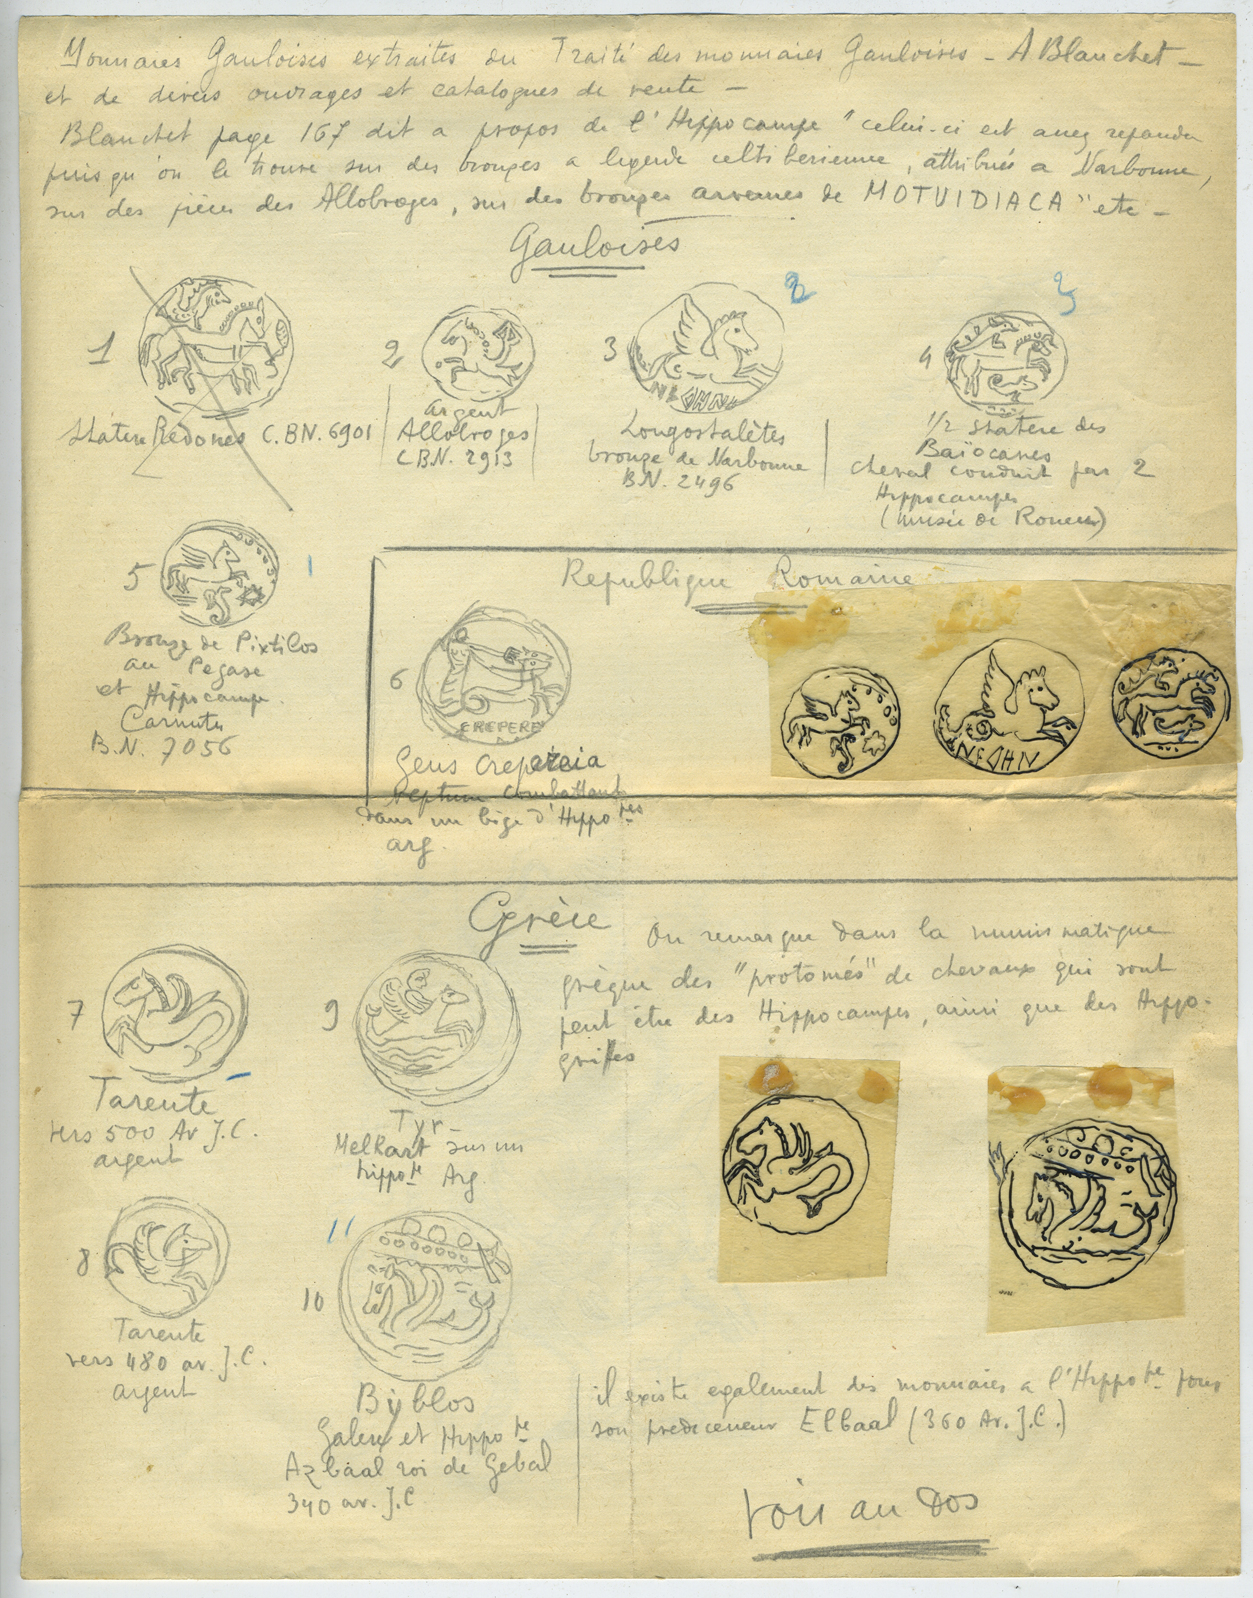 Monnaies Gauloises extraites du Traité des monnaies Gauloises - A Blanchet -
et de divers ouvrages et catalogues de vente -
Blanchet page 167 dit a propos de l'Hippocampe "celui-ci est assez repandu
puisqu'on le trouve sur des bronzes a legende celtiberienne, attribués a Narbonne,
sur des pièces des Allobroges, sur des bronzes arvernes de MOTUIDIACA" etc -
Gauloises
1
2
3
2
4
3
NEDHN
Statère Redones C.BN. 6901
argent
Allobroges
CBN. 2913
Longostalètes
bronze de Narbonne
BN. 2496
1/2 statère des
Baïocasses
cheval conduit par 2
Hippocampes
(musée de Rouen)
5
1
Bronze de Pixtilos
au Pegase
et Hippocampe.
Carnutes
B.N. 7056
Republique Romaine
6
CREPERE
Gens Crepereia
Neptune combattant
dans un bige d'Hippo pes
arg.
NEDHN
Grèce
On remarque dans la numismatique
grèque des "protomés" de chevaux qui sont
peut être des Hippocampes, ainsi que des Hippo-
grifes
7
Tarente
vers 500 Av J.C.
argent
9
Tyr -
Melkart sur un
hippo pe Arg.
8
Tarente
vers 480 av. J.C.
argent
11
10
Byblos
Galère et Hippo pe
Azbaal roi de Gebal
340 av. J.C
il existe egalement des monnaies a l'Hippo pe pour
son predecesseur Elbaal (360 Av. J.C.)
Voir au Dos